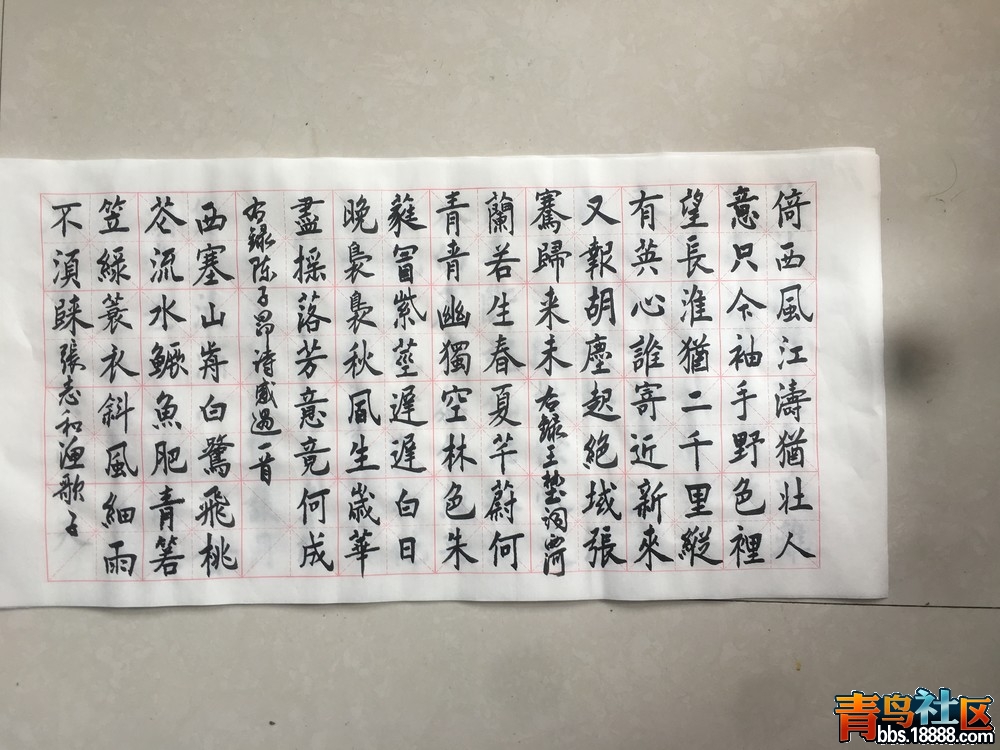 倚西風江濤猶壮人
意只今袖手野色裡
望長淮猶二千里縱
有英心誰寄近新來
又報胡塵起絕域張
騫歸来未 右録王埜词西河
蘭若生春夏芊蔚何
青青幽獨空林色朱
蕤冒紫莖遲遲白日
晚裊裊秋風生歲華
盡摇落芳意竟何成
右録陈子昂诗感遇一首
西塞山前白鷺飛桃
花流水鱖魚肥青箬
笠綠蓑衣斜風細雨
不須歸 張志和渔歌子
青鸟社区
bbs.18888.com